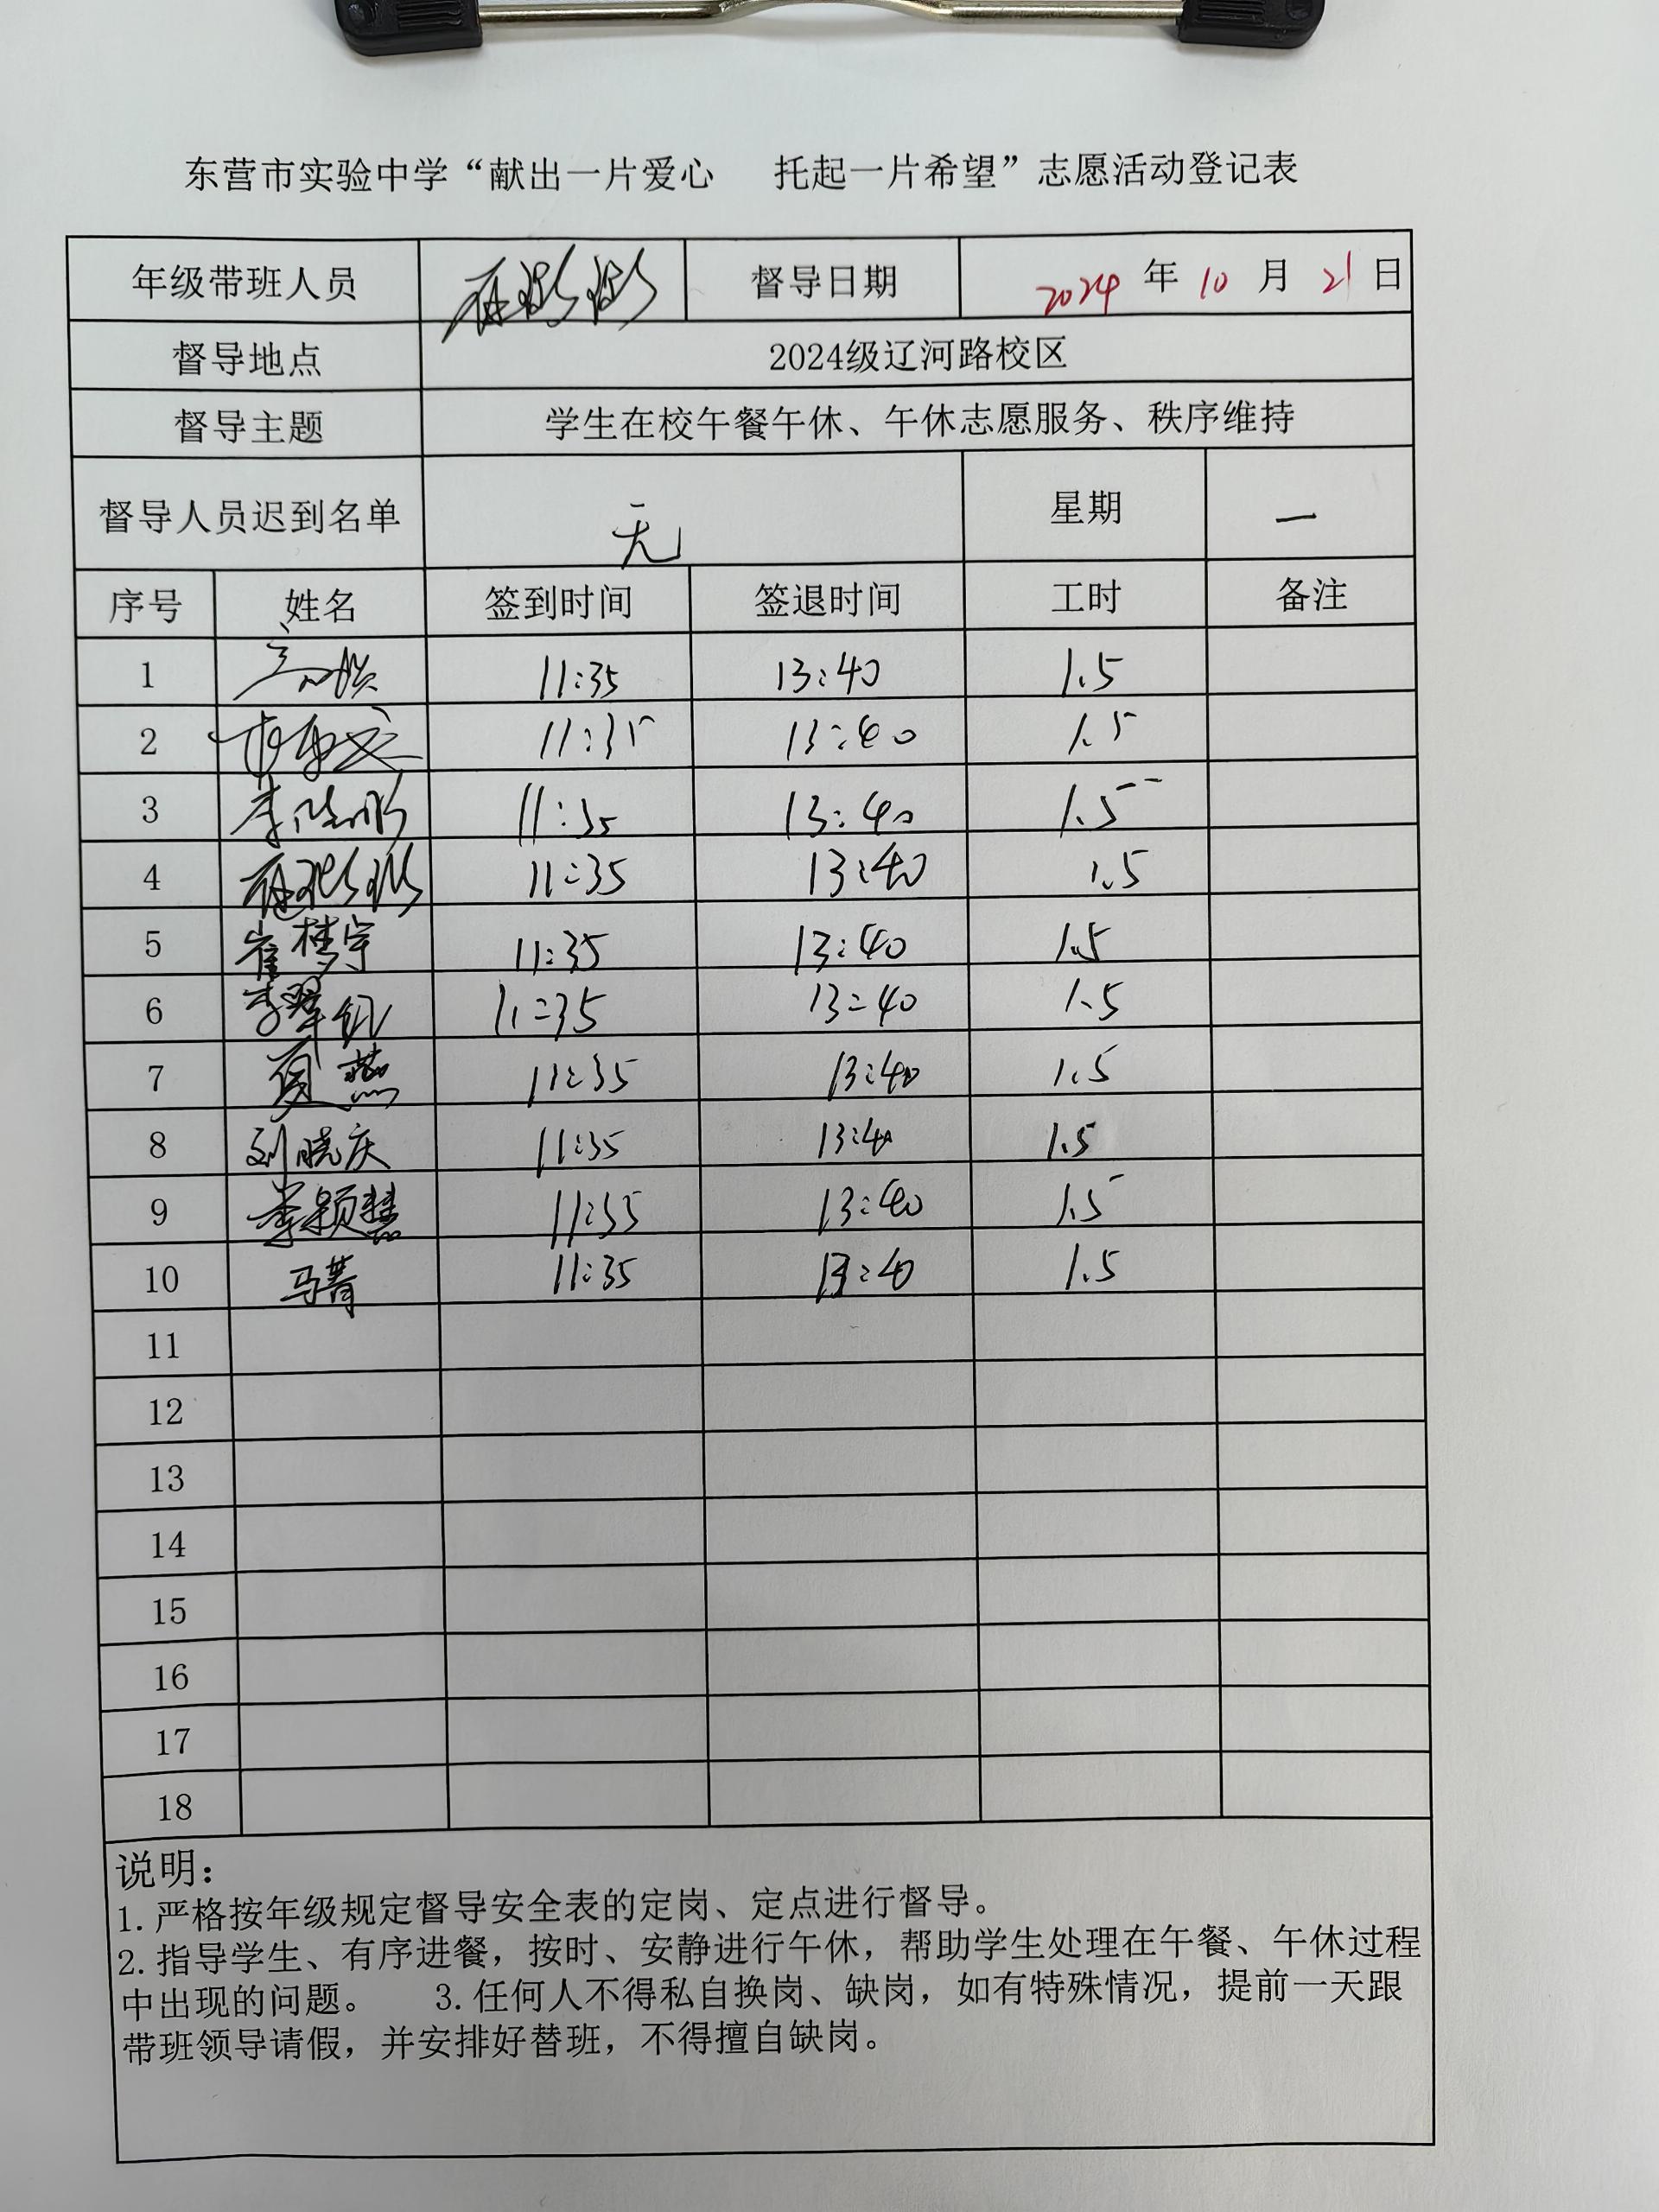 东营市实验中学“献出一片爱心 托起一片希望”志愿活动登记表
年级带班人员 督导日期 2024 年 10 月 21 日
督导地点 2024级辽河路校区
督导主题 学生在校午餐午休、午休志愿服务、秩序维持
督导人员迟到名单 无 星期 一
序号 姓名 签到时间 签退时间 工时 备注
1 11:35 13:40 1.5
2 11:35 13:40 1.5
3 11:35 13:40 1.5
4 11:35 13:40 1.5
5 崔梦宇 11:35 13:40 1.5
6 李翠红 11:35 13:40 1.5
7 夏燕 11:35 13:40 1.5
8 刘晓庆 11:35 13:40 1.5
9 李颖慧 11:35 13:40 1.5
10 马菁 11:35 13:40 1.5
11
12
13
14
15
16
17
18
说明：
1.严格按年级规定督导安全表的定岗、定点进行督导。
2.指导学生、有序进餐，按时、安静进行午休，帮助学生处理在午餐、午休过程
中出现的问题。 3.任何人不得私自换岗、缺岗，如有特殊情况，提前一天跟
带班领导请假，并安排好替班，不得擅自缺岗。